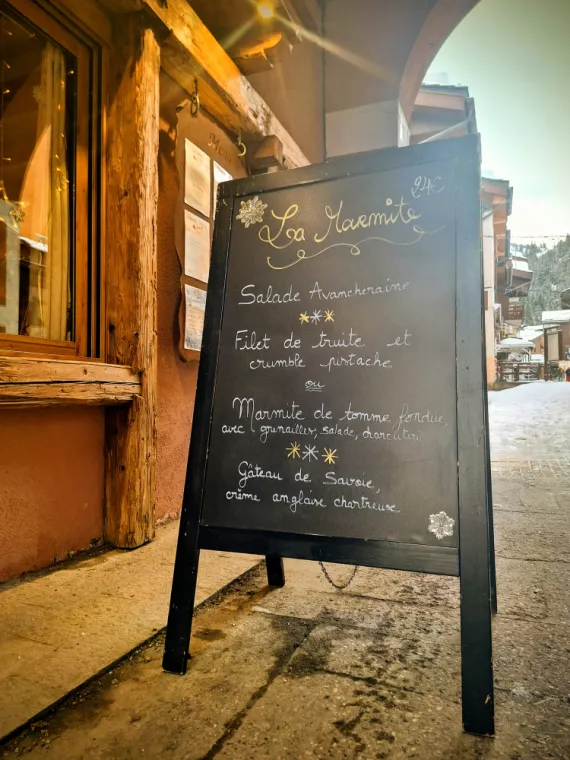 24€
La Marmite
Salade Avancheraine
Filet de truite et
crumble pistache
ou
Marmite de tomme fondue,
avec grenailles, salade, charcuterie
Gâteau de Savoie,
crème anglaise chartreuse